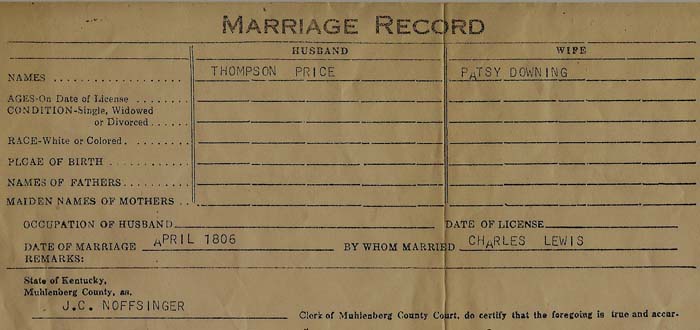 MARRIAGE RECORD
HUSBAND WIFE
NAMES THOMPSON PRICE PATSY DOWNING
AGES-On Date of License
CONDITION-Single, Widowed
or Divorced
RACE-White or Colored
PLCAE OF BIRTH
NAMES OF FATHERS
MAIDEN NAMES OF MOTHERS
OCCUPATION OF HUSBAND DATE OF LICENSE
DATE OF MARRIAGE APRIL 1806 BY WHOM MARRIED CHARLES LEWIS
REMARKS:
State of Kentucky,
Muhlenberg County, ss.
J.C. NOFFSINGER
Clerk of Muhlenberg County Court, do certify that the foregoing is true and accur-